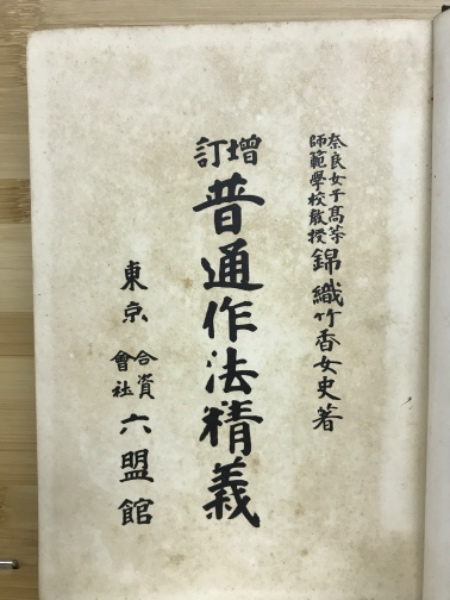 奈良女子高等師範學校敎授 錦織竹香女史著
增訂 普通作法精義
東京 合資會社 六盟館